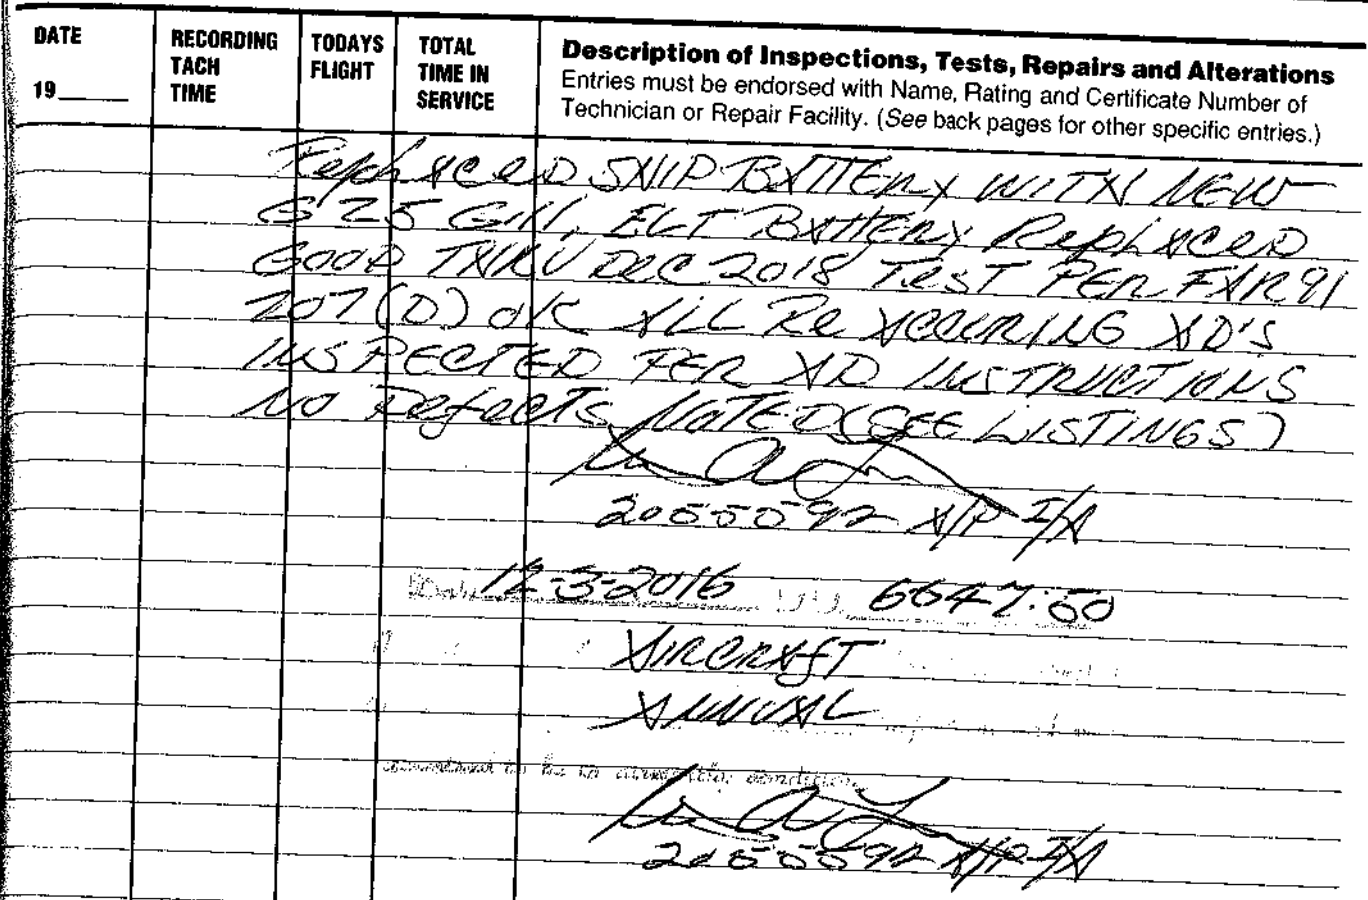 DATE
19
RECORDING
TACH
TIME
TODAYS
FLIGHT
TOTAL
TIME IN
SERVICE
Description of Inspections, Tests, Repairs and Alterations
Entries must be endorsed with Name, Rating and Certificate Number of
Technician or Repair Facility. (See back pages for other specific entries.)
Replaced SHIP BATTERY WITH NEW
G 25 Gill, ELT BATTERY Replaced
GOOD THRU DEC 2018 TEST PER FAR 91
207 (D) o/k ALL Re ACCURING AD'S
INSPECTED PER AD INSTRUCTIONS
NO Defects NOTED (SEE LISTINGS)
2055092 A/P I/A
Date 12-3-2016 6647.50
AIRCRAFT
ANNUAL
to be in airworthy condition.
2055092 A/P I/A